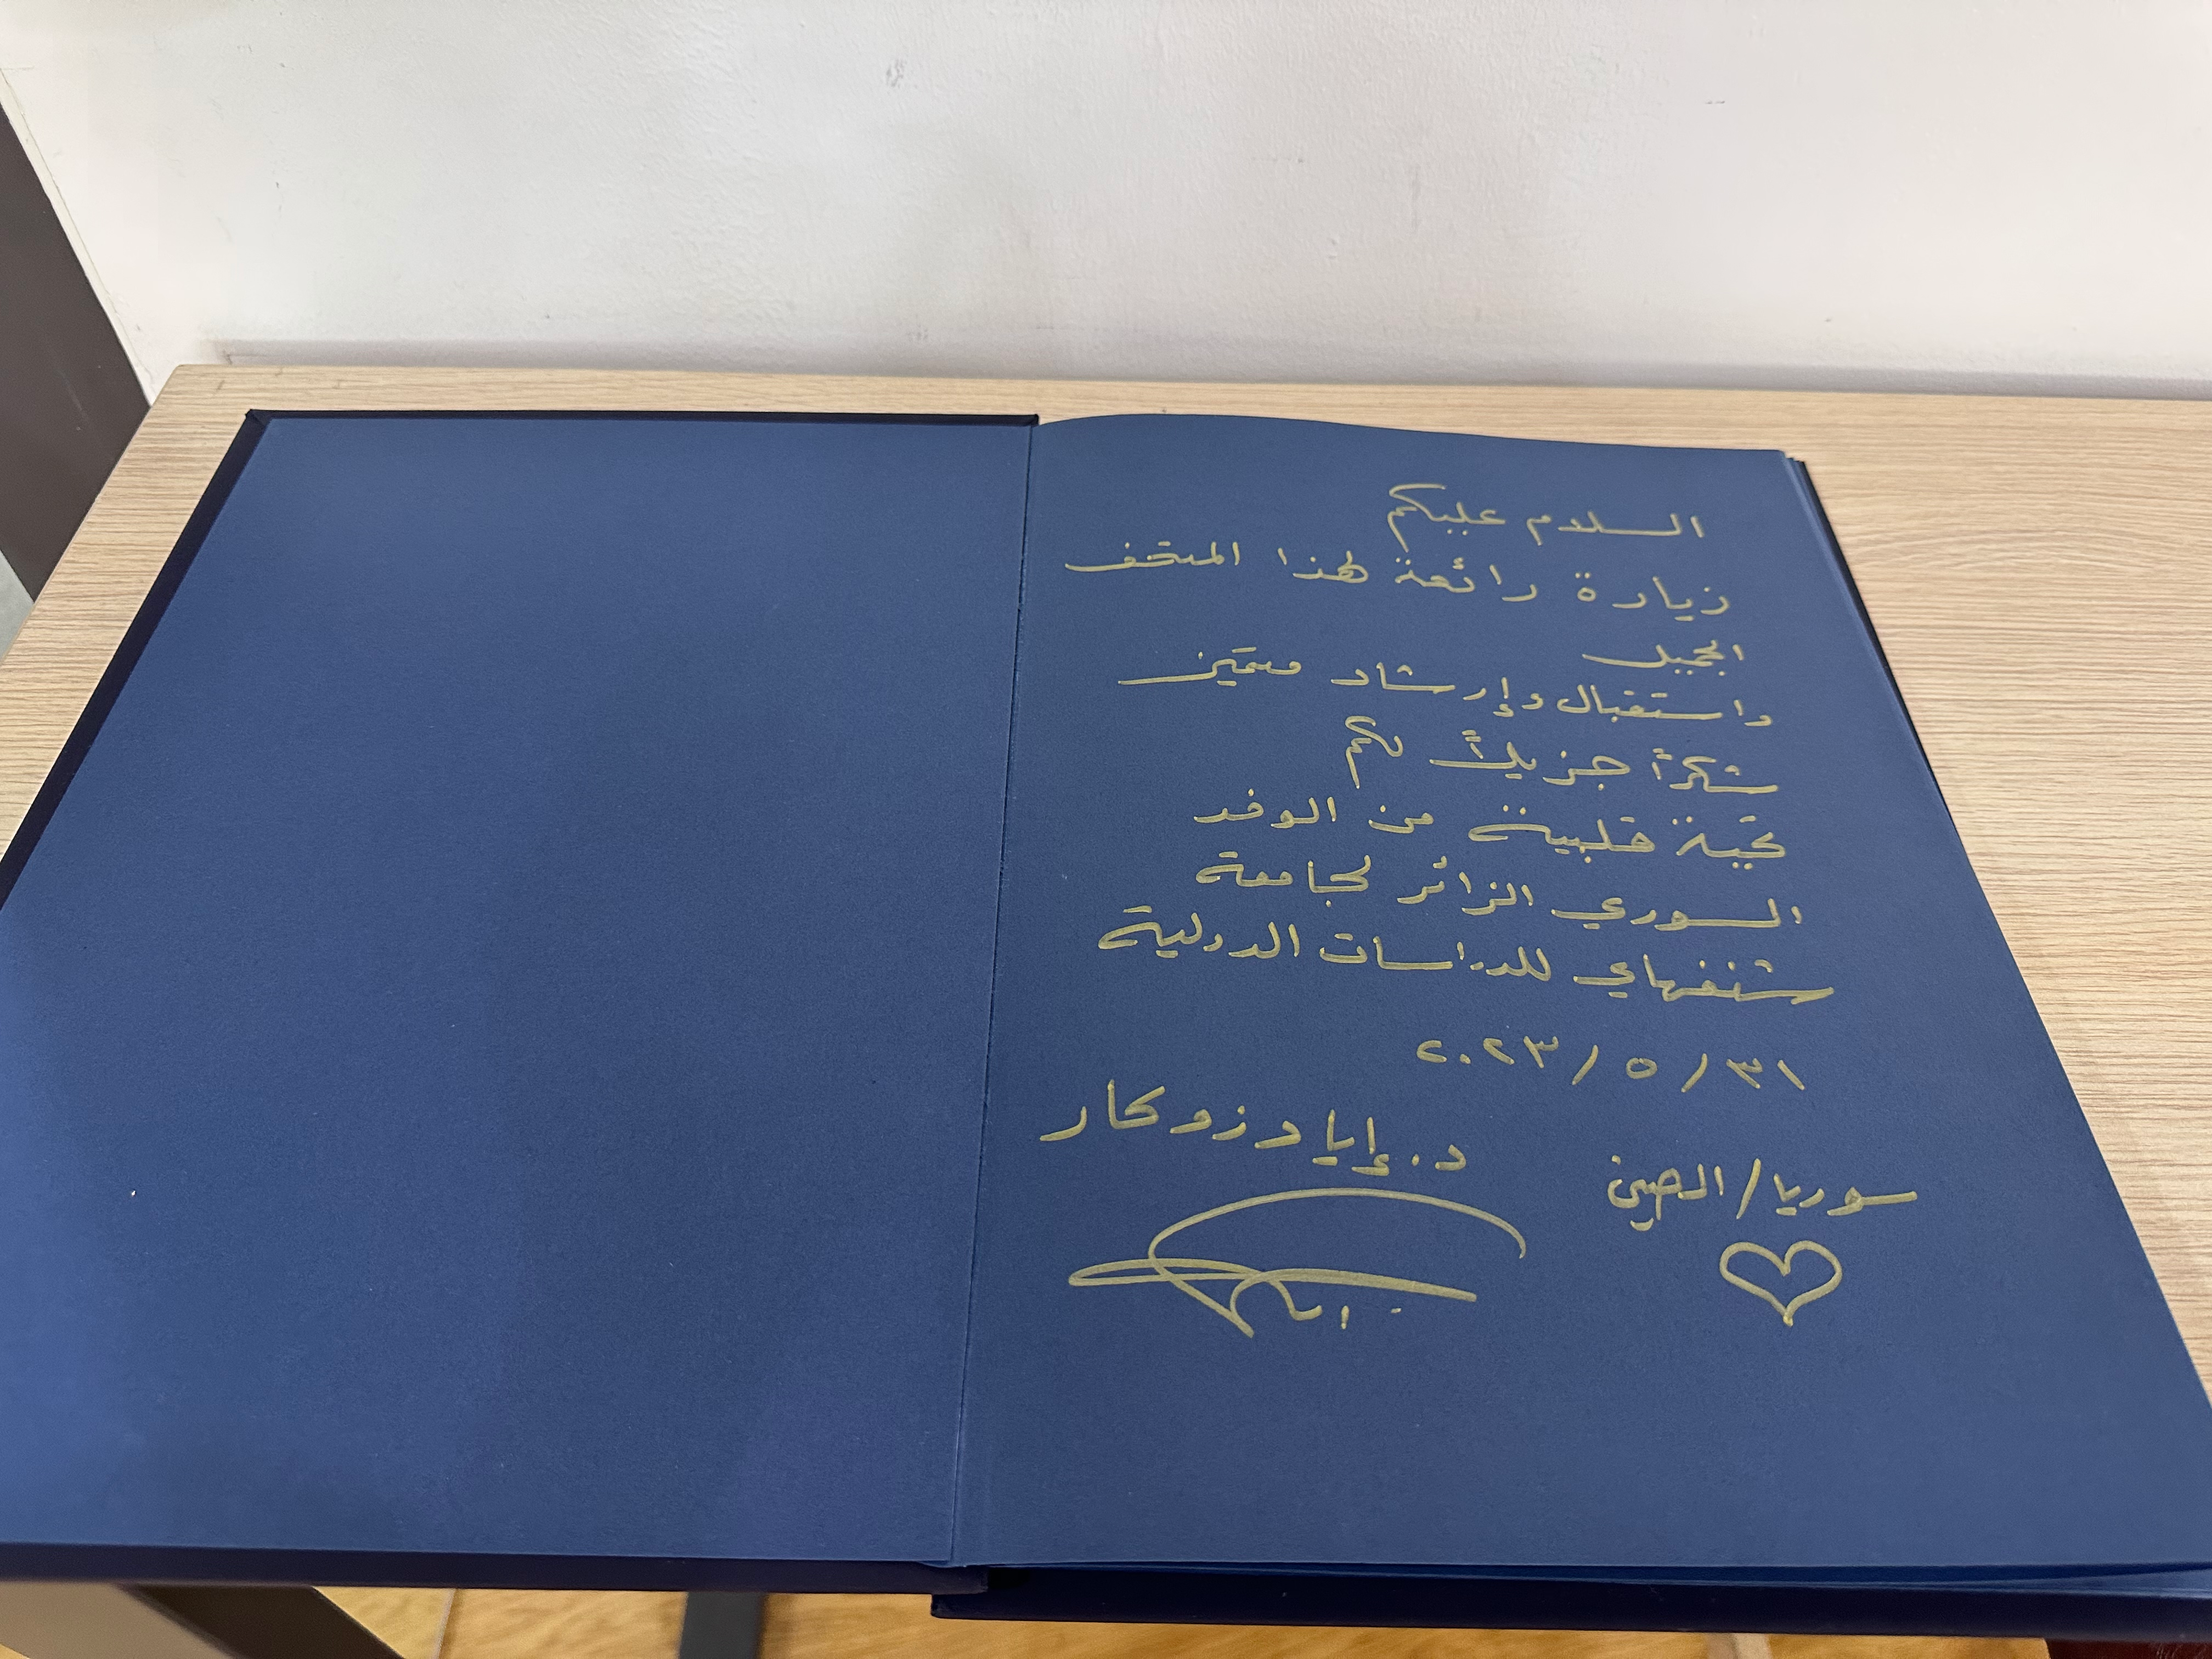 السلام عليكم
زيارة رائعة لهذا المتحف
الجميل
واستقبال وإرشاد متميز
شكراً جزيلاً لكم
تحية قلبية من الوفد
السوري الزائر لجامعة
شنغهاي للدراسات الدولية
٣١ / ٥ / ٢٠٢٣
د. إياد زوكار
سوريا/الصين